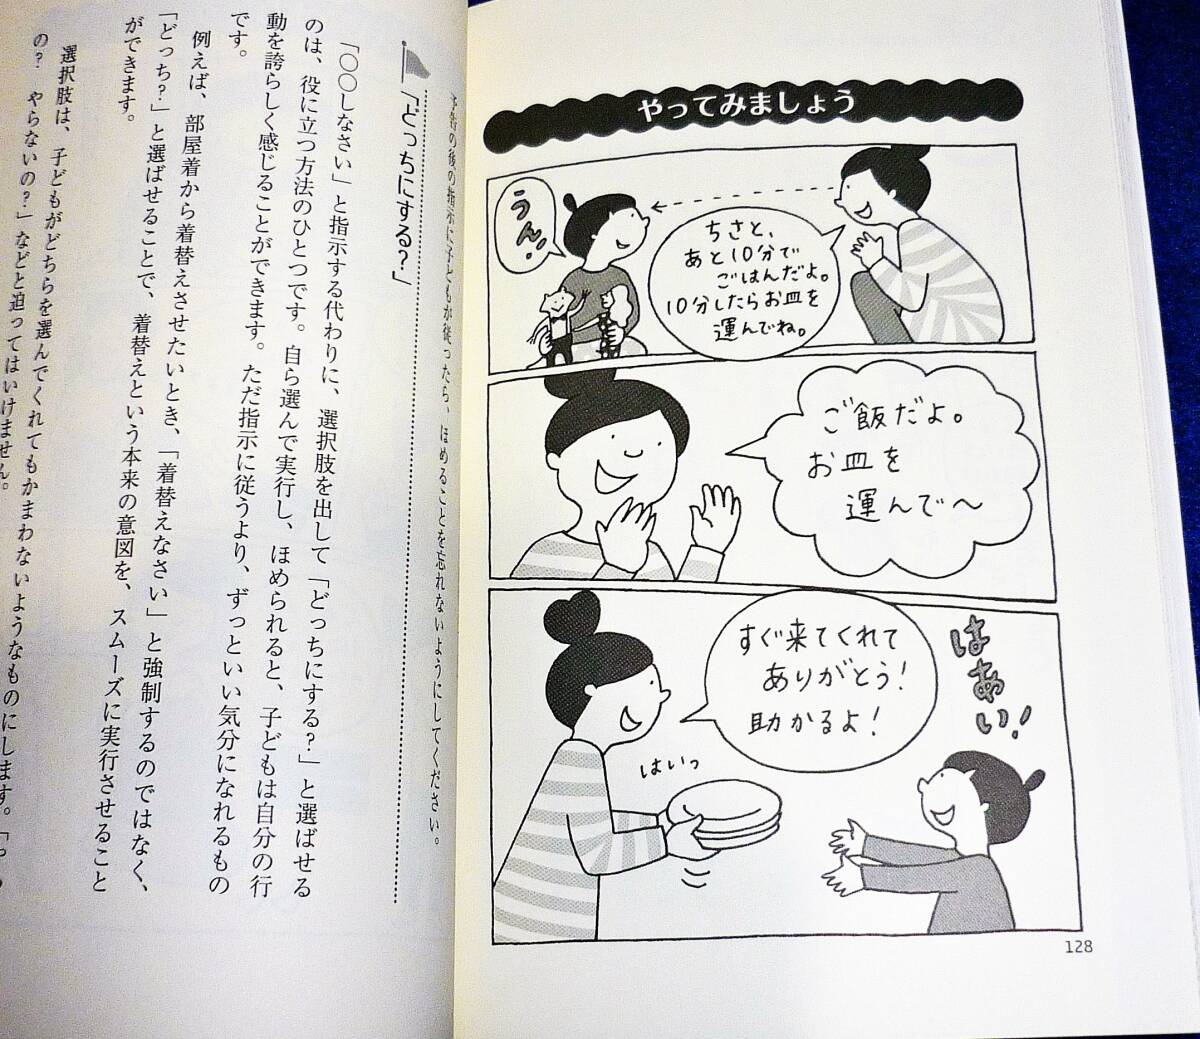 やってみましょう
ちさと、
あと10分で
ごはんだよ。
10分したらお皿を
運んでね。
うん!
ご飯だよ。
お皿を
運んで〜
はあい!
すぐ来てくれて
ありがとう!
助かるよ!
はいっ
128
の後の指示に子どもが従ったら、ほめることを忘れないようにしてください。
「どっちにする?」
「〇〇しなさい」と指示する代わりに、選択肢を出して「どっちにする?」と選ばせる
のは、役に立つ方法のひとつです。自ら選んで実行し、ほめられると、子どもは自分の行
動を誇らしく感じることができます。ただ指示に従うより、ずっといい気分になれるもの
です。
例えば、部屋着から着替えさせたいとき、「着替えなさい」と強制するのではなく、
「どっち?」と選ばせることで、着替えという本来の意図を、スムーズに実行させること
ができます。
選択肢は、子どもがどちらを選んでくれてもかまわないようなものにします。「
の? やらないの?」などと迫ってはいけません。